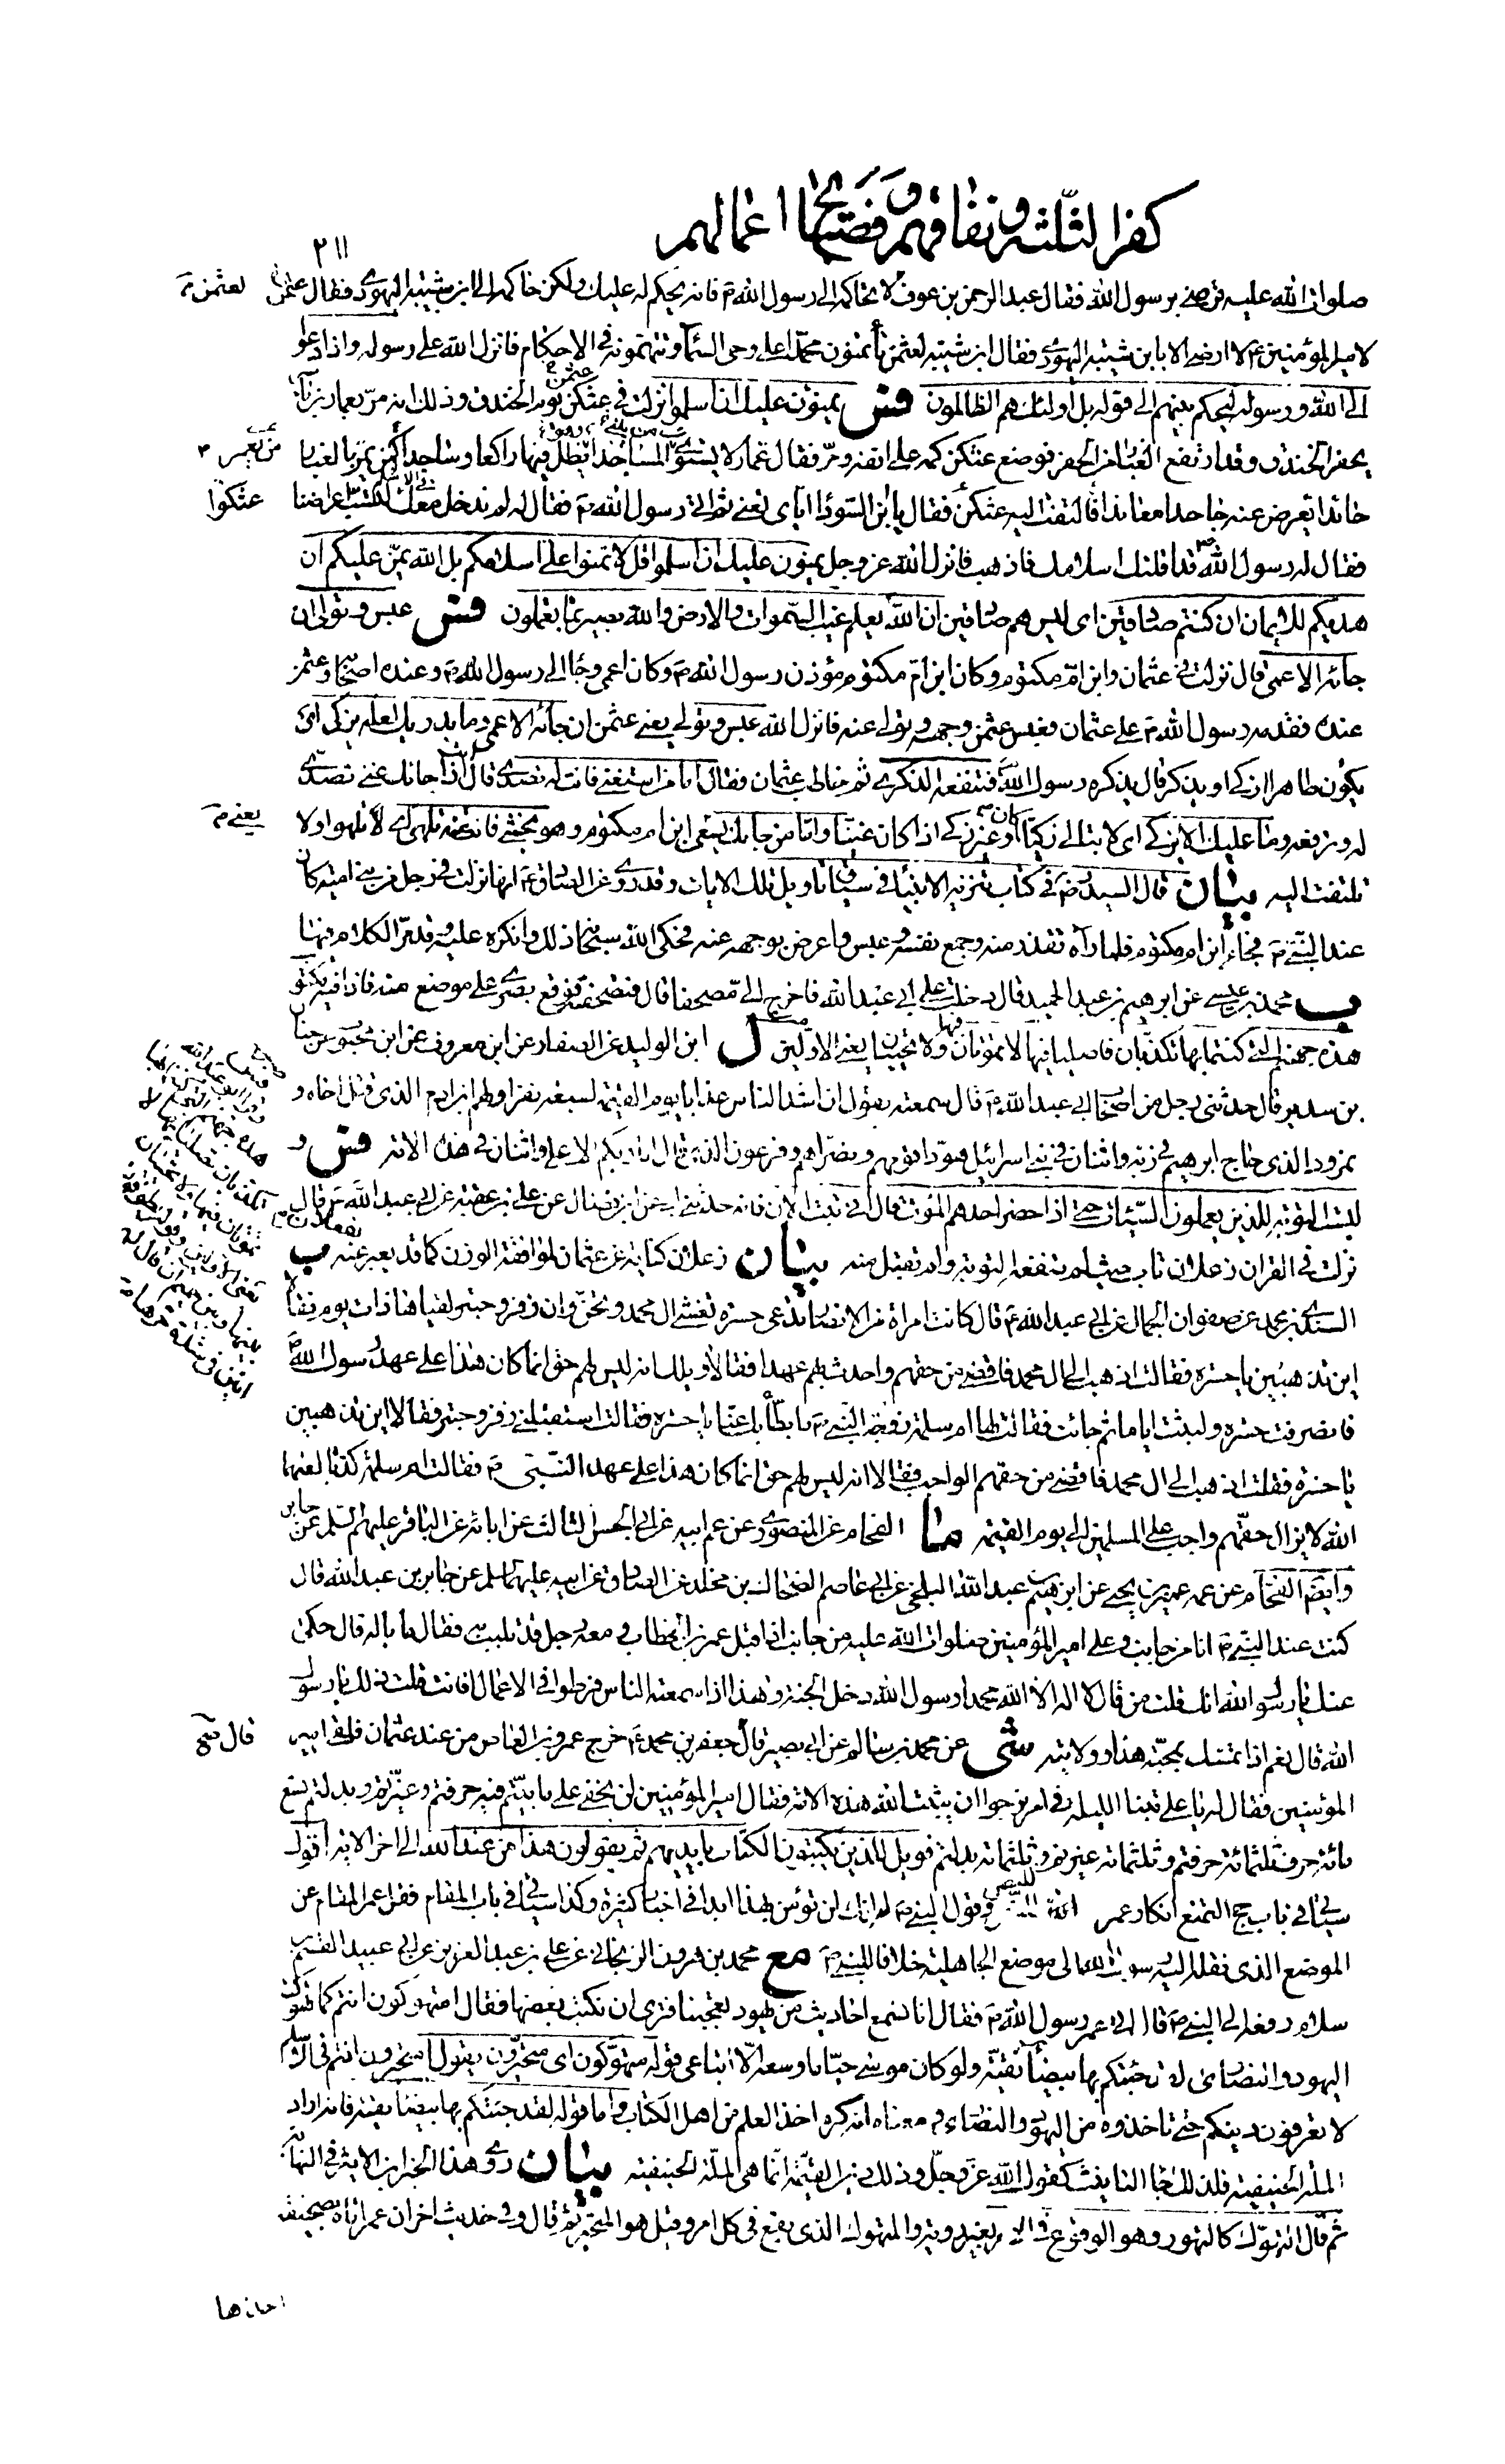 كفر الثلثة ونفاقهم وفضايح اعمالهم
٢١١
صلوات الله عليه ترضى برسول الله فقال عبد الرحمن بن عوف لا تحاكمه الى رسول الله ص فانه يحكم له عليك ولكن حاكمه الى ابن شيبة اليهودى فقال عثمن
لعثمن ص
لامير المؤمنين ع لا ارضى الا بابن شيبة اليهودى فقال ابن شيبة لعثمن تأتمنون محمدا على وحى السماء وتتهمونه فى الاحكام فانزل الله على رسوله واذا دعوا
الى الله ورسوله ليحكم بينهم الى قوله بل اولئك هم الظالمون فس يمنون عليك ان اسلموا نزلت فى عثكن يوم الخندق وذلك انه مر بعمار بن ياسر
يحفر الخندق وقد ارتفع الغبار من الحفر فوضع عثكن كمه على انفه ومر فقال عمار لا يستوى من يبنى المساجدا يظل فيها راكعا وساجدا كمن يمر بالغبار
حائدا يعرض عنه جاحدا معاندا فالتفت اليه عثكن فقال يابن السوداء اياى تعنى ثم اتى رسول الله ص فقال له لم ندخل معك لتسب اعراضنا
عثكوا
فقال له رسول الله ص قد اقلتك اسلامك فاذهب فانزل الله عز وجل يمنون عليك ان اسلموا قل لا تمنوا على اسلامكم بل الله يمن عليكم ان
هديكم للايمان ان كنتم صادقين اى ليس هم صادقين ان الله يعلم غيب السموات والارض والله بصير بما تعملون فس عبس وتولى ان
جائه الاعمى قال نزلت فى عثمان وابن ام مكتوم وكان ابن ام مكتوم مؤذن رسول الله ص وكان اعمى وجاء الى رسول الله ص وعنده اصحابه وعثمن
عنده فقدمه رسول الله ص على عثمان فعبس عثمن وجهه وتولى عنه فانزل الله عبس وتولى يعنى عثمن ان جائه الاعمى وما يدريك لعله يزكى اى
يكون طاهرا ازكى او يذكر قال يذكره رسول الله فتنفعه الذكرى ثم خاطب عثمان فقال اما من استغنى فانت له تصدى قال اذا جائك غنى تصدى
له وترفعه وما عليك الا يزكى اى لا تبالى زكيا كان او غير زكى اذا كان غنيا واما من جاءك يسعى ابن ام مكتوم وهو يخشى فانت عنه تلهى اى تلهوا ولا
يعنى م
تلتفت اليه بيان قال السيد رض فى كتاب تنزيه الانبياء فى سياق تاويل تلك الايات وقد روى عن الصادق ع انها نزلت فى رجل من بنى امية كان
عند النبى ص فجاء ابن ام مكتوم فلما رآه تقذر منه وجمع نفسه وعبس واعرض بوجهه عنه فحكى الله سبحانه ذلك وانكره عليه وقد مر الكلام فيها
ب محمد بن عيسى عن ابرهيم بن عبد الحميد قال دخلت على ابى عبد الله فاخرج الى مصحفا قال فتصفحته فوقع بصرى على موضع منه فاذا فيه مكتوب
هذه جهنم التى كنتما بها تكذبان فاصليا فيها لا تموتان فيها ولا تحييان يعنى الاولين ل ابن الوليد عن الصفار عن ابن معروف عن ابن محبوب عن حنان
بن سدير قال حدثنى رجل من اصحاب ابى عبد الله ع قال سمعته يقول ان اشد الناس عذابا يوم القيمة لسبعة نفر اولهم ابن ادم الذى قتل اخاه و
نمرود الذى حاج ابرهيم فى ربه واثنان فى بنى اسرائيل هودا قومهم ونصراهم وفرعون الذى قال انا ربكم الاعلى واثنان فى هذه الامة فس و
ليست التوبة للذين يعملون السيئات حتى اذا حضر احدهم الموت قال انى تبت الان فانه حدثنى ابى عن ابن فضال عن على بن عقبة عن ابى عبد الله ع قال
نزلت فى القران زعلان تاب حيث لم تنفعه التوبة ولم تقبل منه بيان زعلان كناية عن عثمان لموافقة الوزن كما قد يعبر عنه بفعلان ب
السندى بن محمد عن صفوان الجمال عن ابى عبد الله ع قال كانت امراة من الانصار تدعى حسرة تغشى ال محمد وتحن وان زفر وحبتر لقياها ذات يوم فقالا
اين تذهبين يا حسرة فقالت اذهب الى ال محمد فاقضى من حقهم واحدث بهم عهدا فقالا ويلك انه ليس لهم حق انما كان هذا على عهد رسول الله ص
فانصرفت حسرة ولبثت اياما ثم جائت فقالت لها ام سلمة زوجة النبى ص ما ابطأ بك عنا يا حسرة فقالت استقبلنى زفر وحبتر فقالا اين تذهبين
يا حسرة فقلت اذهب الى ال محمد فاقضى من حقهم الواجب فقالا انه ليس لهم حق انما كان هذا على عهد النبى ص فقالت ام سلمة كذبا لعنهما
الله لا يزال حقهم واجب على المسلمين الى يوم القيمة ما الفحام عن المنصورى عن عم ابيه عن ابى الحسن الثالث عن ابائه عن الباقر عليهم السلم عن جابر
وايضا الفحام عن عمه عمير بن يحيى عن ابرهيم بن عبد الله البلخى عن ابى عاصم الضحاك بن مخلد عن الصادق عن ابيه عليهما السلم عن جابر بن عبد الله قال
كنت عند النبى ص انا من جانب وعلى امير المؤمنين صلوات الله عليه من جانب اذ اقبل عمر بن الخطاب ومعه رجل قد تلبب به فقال ما باله قال حكى
عنك يا رسول الله انك قلت من قال لا اله الا الله محمد رسول الله دخل الجنة وهذا اذا سمعته الناس فرطوا فى الاعمال افانت قلت ذلك يا رسول
الله قال نعم اذا تمسك بمحبة هذا وولايته شى عن محمد بن سالم عن ابى بصير قال جعفر بن محمد ع خرج عمرو بن العاص من عند عثمان فلقى امير
قال صح
المؤمنين فقال له يا على بتنا الليلة فى امر نرجوا ان يثبت الله هذه الامة فقال امير المؤمنين لن يخفى على ما بيتم فيه حرفتم وغيرتم وبدلتم تسع
مائة حرف ثلثمائة حرفتم وثلثمائة غيرتم وثلثمائة بدلتم فويل للذين يكتبون الكتاب بايديهم ثم يقولون هذا من عند الله الى اخر الاية اقول
سياتى فى باب حج التمتع انكار عمر للنص وقول النبى ص له انك لن تؤمن بهذا ابدا فى اخبار كثيرة وكذا سياتى فى باب المقام نقل عمر المقام عن
الموضع الذى نقله اليه رسول الله الى موضع الجاهلية خلافا للنبى ص مع محمد بن هرون الزنجانى عن على بن عبد العزيز عن ابى عبيد القسم بن
سلام رفعه الى النبى ص قال اتى عمر رسول الله ص فقال انا نسمع احاديث من يهود تعجبنا فترى ان نكتب بعضها فقال امتهوكون انتم كما تهوكت
اليهود والنصارى لقد جئتكم بها بيضاء نقية ولو كان موسى حيا ما وسعه الا اتباعى قوله متهوكون اى متحيرون يقول امتحيرون انتم فى الاسلام
لا تعرفون دينكم حتى تاخذوه من اليهود والنصارى ومعناه انه كره اخذ العلم من اهل الكتاب واما قوله لقد جئتكم بها بيضاء نقية فانه اراد
الملة الحنيفية فلذلك جاء التانيث كقول الله عز وجل وذلك دين القيمة انما هى الملة الحنيفية بيان روى هذا الخبر ابن الاثير فى النهاية
ثم قال التهوك كالتهور وهو الوقوع فى الامر بغير روية والمتهوك الذى يقع فى كل امر وقيل هو المتحير ثم قال وفى حديث اخر ان عمر اتاه بصحيفة
اخذها